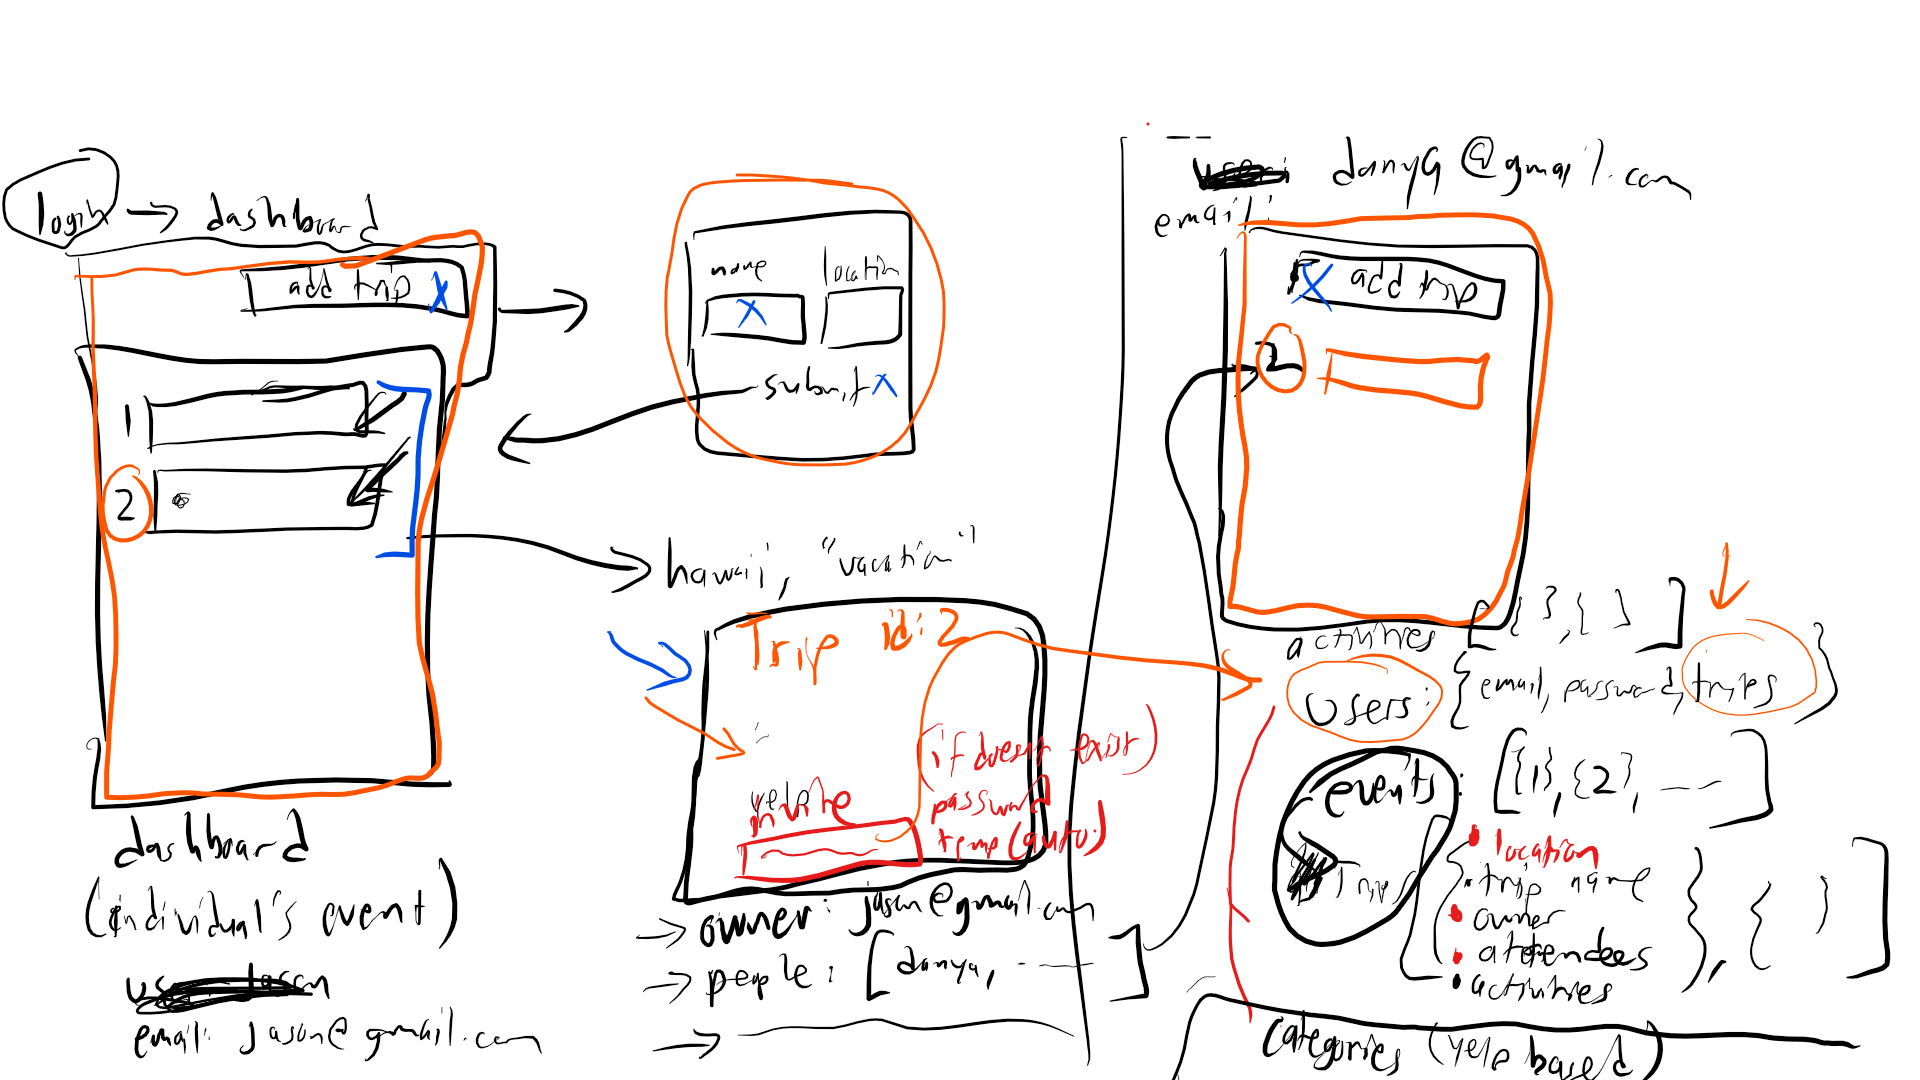 login → dashboard
add trip X
1
2
dashboard
(individual's event)
email: jason@gmail.com
name location
X
submit X
hawaii, "vacation"
Trip id: 2
invite
(if doesn't exist)
password
temp (auto)
→ owner: jason@gmail.com
→ people: [danya, ---]
→
danya@gmail.com
email:
X add trip
2
activities [{ }, { }]
users: {email, password, trips}
events: [{1}, {2}, ---]
Trips
• location
• trip name
• owner
• attendees
• activities
}, { }]
categories (yelp based)